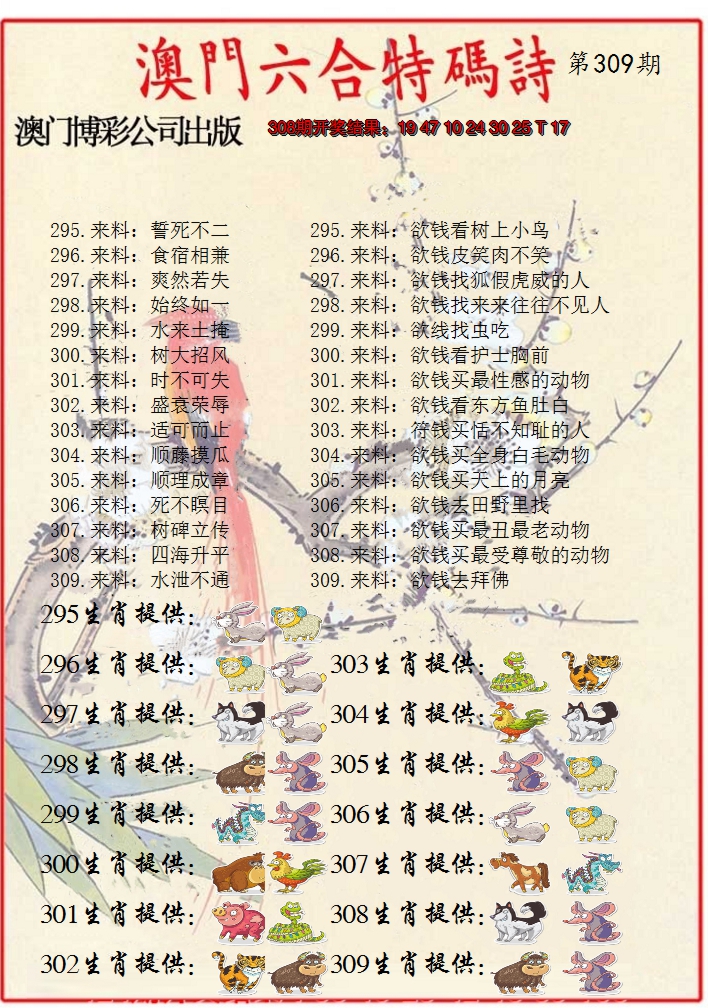 澳門六合特碼詩 第309期
澳门博彩公司出版 308期开奖结果：19 47 10 24 30 25 T 17
295.来料：誓死不二 295.来料：欲钱看树上小鸟
296.来料：食宿相兼 296.来料：欲钱皮笑肉不笑
297.来料：爽然若失 297.来料：欲钱找狐假虎威的人
298.来料：始终如一 298.来料：欲钱找来来往往不见人
299.来料：水来土掩 299.来料：欲线找虫吃
300.来料：树大招风 300.来料：欲钱看护士胸前
301.来料：时不可失 301.来料：欲钱买最性感的动物
302.来料：盛衰荣辱 302.来料：欲钱看东方鱼肚白
303.来料：适可而止 303.来料：符钱买恬不知耻的人
304.来料：顺藤摸瓜 304.来料：欲钱买全身白毛动物
305.来料：顺理成章 305.来料：欲钱买天上的月亮
306.来料：死不瞑目 306.来料：欲钱去田野里找
307.来料：树碑立传 307.来料：欲钱买最丑最老动物
308.来料：四海升平 308.来料：欲钱买最受尊敬的动物
309.来料：水泄不通 309.来料：欲钱去拜佛
295生肖提供：
296生肖提供： 303生肖提供：
297生肖提供： 304生肖提供：
298生肖提供： 305生肖提供：
299生肖提供： 306生肖提供：
300生肖提供： 307生肖提供：
301生肖提供： 308生肖提供：
302生肖提供： 309生肖提供：